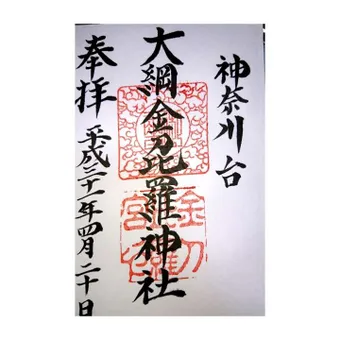 神奈川台
大綱金刀比羅神社
奉拝
平成三十一年四月二十日